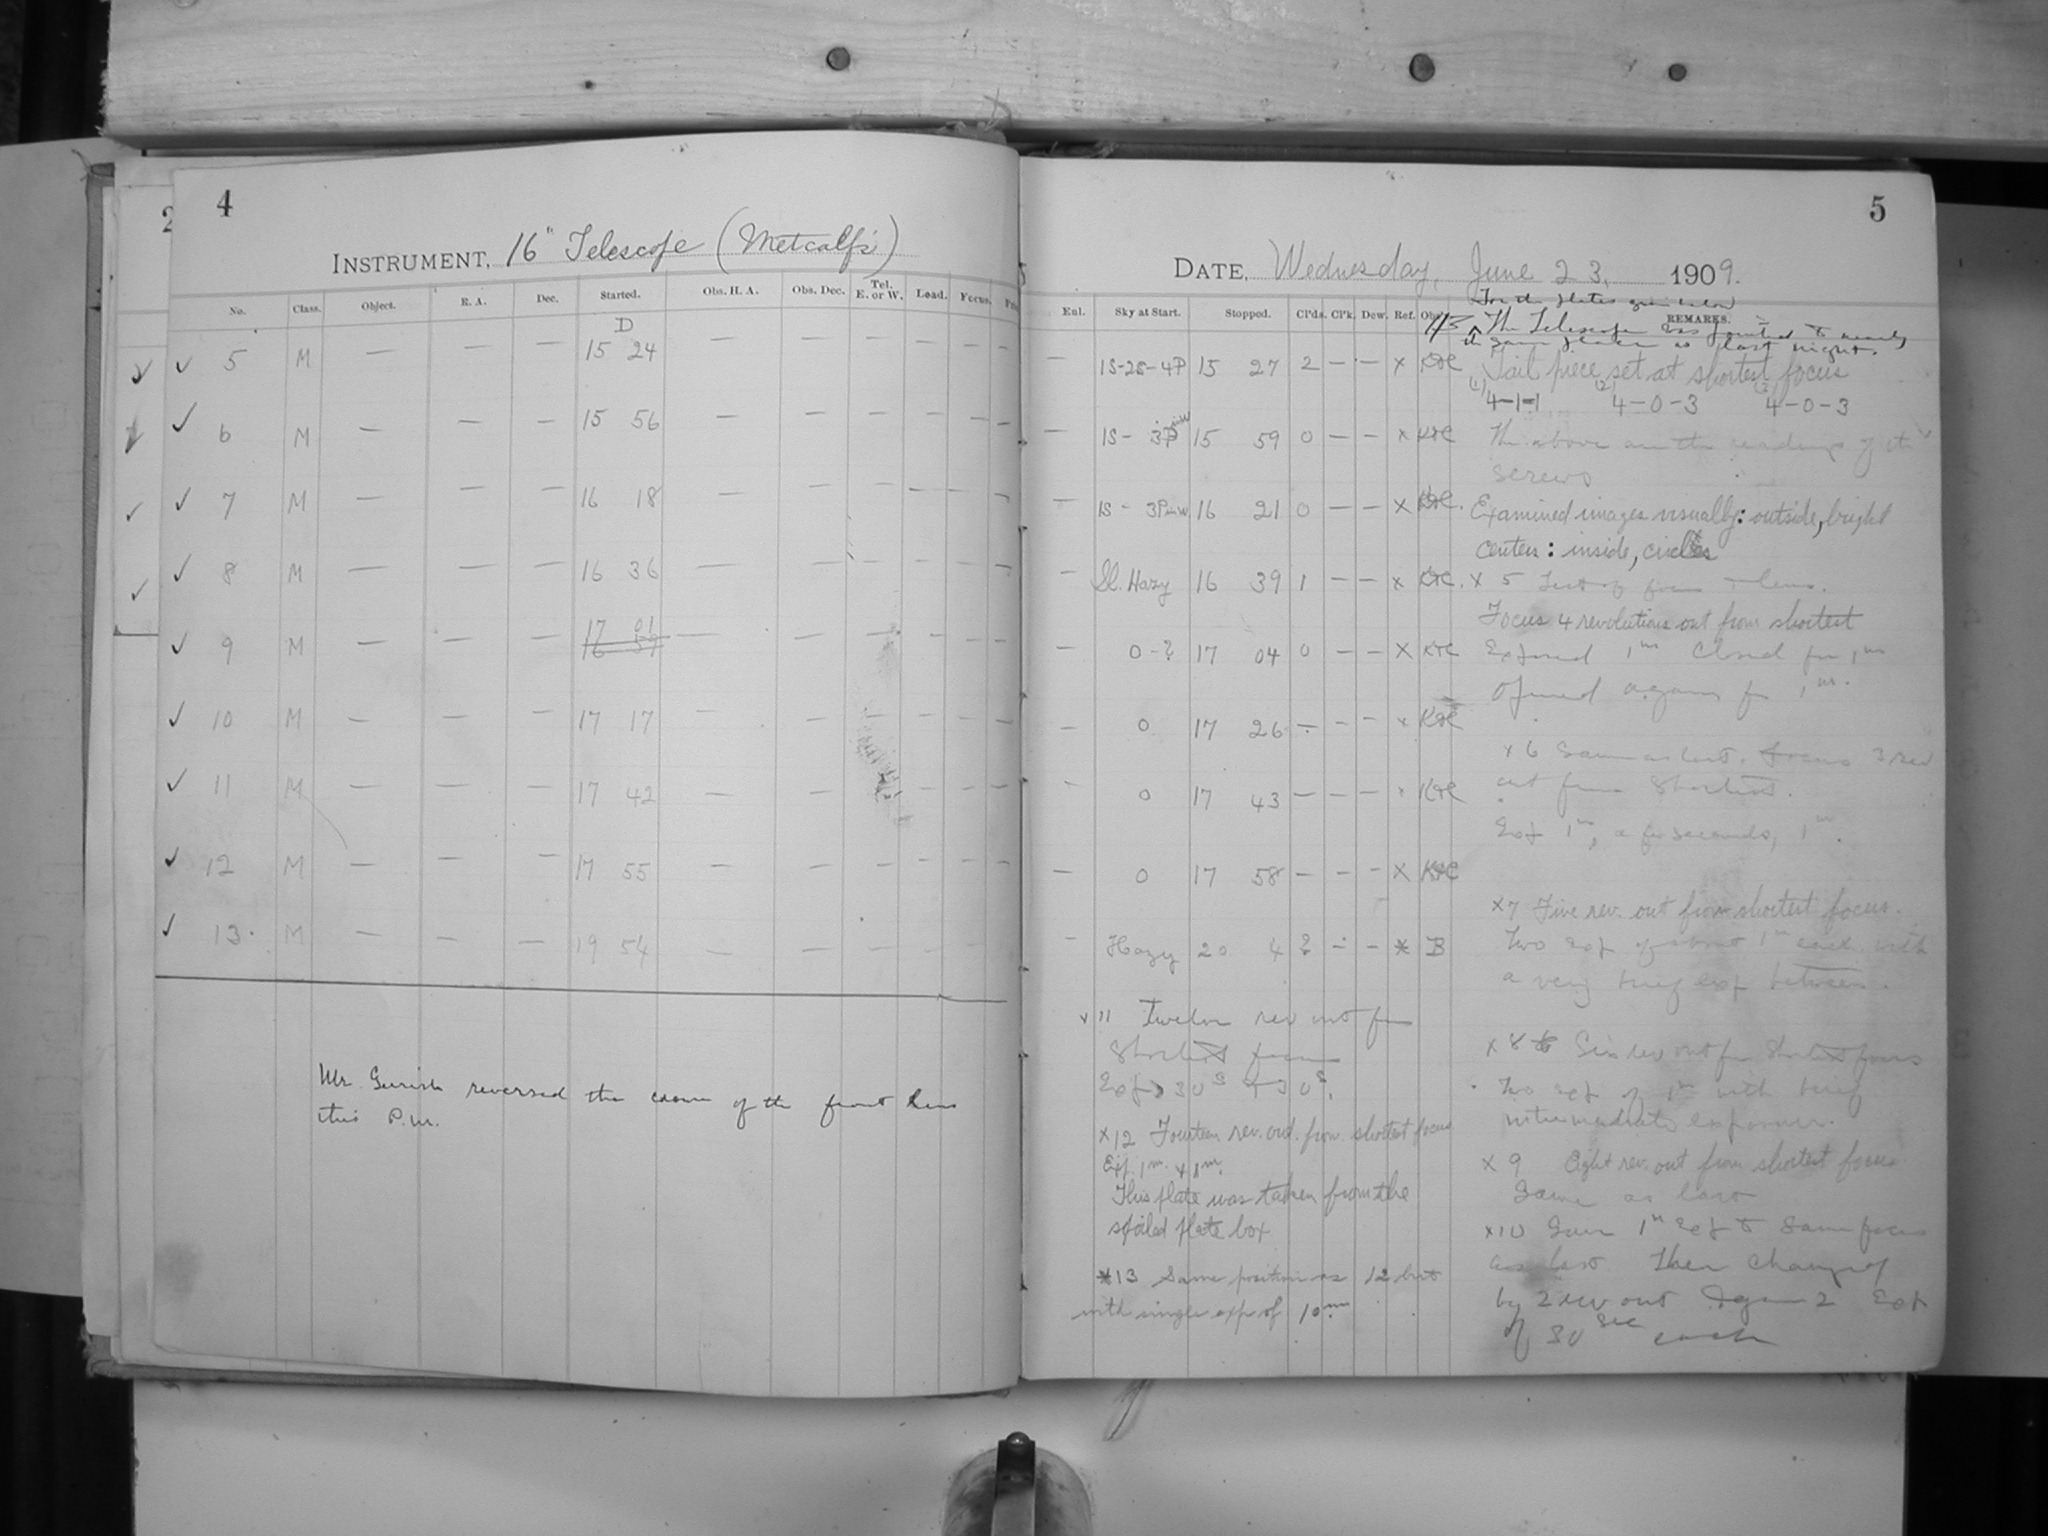 4
INSTRUMENT, 16" Telescope (Metcalf's)
No. Class. Object. R. A. Dec. Started. Obs. H. A. Obs. Dec. Tel. E. or W. Load. Focus.
D
✓ 5 M — — — 15 24 — — — — —
✓ 6 M — — — 15 56 — — — — —
✓ 7 M — — — 16 18 — — — — —
✓ 8 M — — — 16 36 — — — — —
17 01
✓ 9 M — — — — — — — —
✓ 10 M — — — 17 17 — — — — —
✓ 11 M — — — 17 42 — — — — —
✓ 12 M — — — 17 55 — — — — —
✓ 13. M — — — 19 54 — — — — —
Mr. Gerrish reversed the crown of the front lens
this P.M.
2
5
DATE, Wednesday, June 23, 1909.
For the plates given below
The Telescope was pointed to nearly
the same place as last night.
Enl. Sky at Start. Stopped. Cl'ds. Cl'k. Dew. Ref. Obs'r REMARKS.
— 1S-2S-4P 15 27 2 — — x
— 1S- 15 59 0 — — x
— 1S - 3PinW 16 21 0 — — x
— Sl. Hazy 16 39 1 — — x
— 0-2 17 04 0 — — x
— 0 17 26 — — — x
— 0 17 43 — — — x
— 0 17 58 — — — x
— Hazy 20 4 2 — — * B
Tail piece set at shortest focus
(1) 4-1-1 (2) 4-0-3 (3) 4-0-3
The above are the readings of the
screws
Examined images visually: outside, bright
centers: inside, circles
x 5 Test of focus + lens.
Focus 4 revolutions out from shortest
Exposed 1m Closed for 1m
Opened again for 1m.
x 6 Same as last. Focus 3 rev
out from shortest.
Exp 1m, a few seconds, 1m.
x7 Five rev. out from shortest focus.
Two exp of about 1m each with
a very brief exp between.
x 8 Six rev out fr shortest focus
Two exp of 1m with brief
intermediate exposure.
x 9 Eight rev. out from shortest focus
Same as last
x10 Gave 1m Exp to same focus
as last Then changed
by 2 rev out Again 2 Exp
of 30 sec each
x 11 Twelve rev out fm
shortest focus
Exp 30s + 30s.
x12 Fourteen rev. out. from shortest focus
Exp. 1m. + 1m.
This plate was taken from the
spoiled plate box
*13 Same position as 12 but
with single exp of 10m